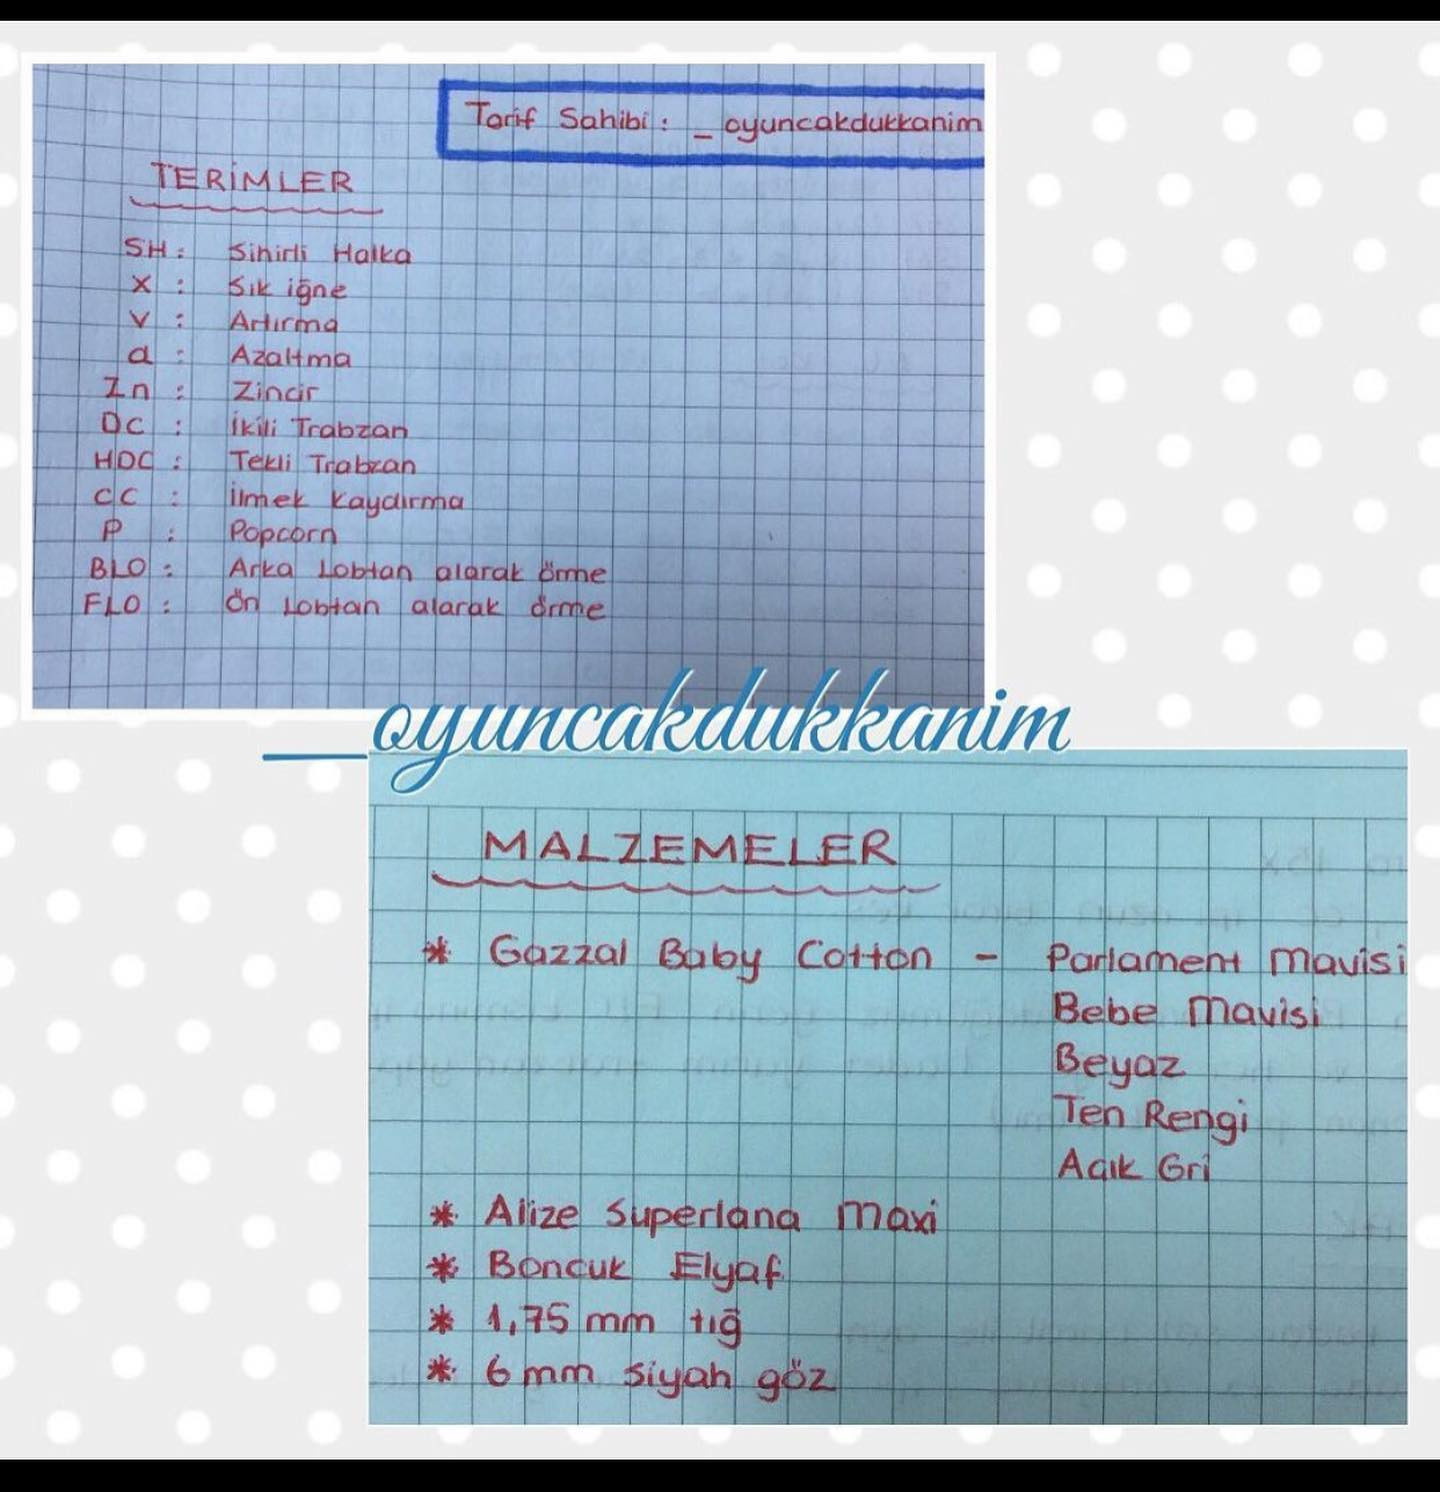 Tarif Sahibi: _ oyuncakdukkanim
TERİMLER
SH: Sihirli Halka
X : Sık iğne
V : Artırma
a : Azaltma
Zn : Zincir
DC : İkili Trabzan
HDC : Tekli Trabzan
CC : İlmek kaydırma
P : Popcorn
BLO : Arka Lobtan alarak örme
FLO : Ön Lobtan alarak örme
_oyuncakdukkanim
MALZEMELER
* Gazzal Baby Cotton - Parlament mavisi
Bebe mavisi
Beyaz
Ten Rengi
Açık Gri
* Alize Superlana maxi
* Boncuk Elyaf
* 1,75 mm tığ
* 6 mm siyah göz